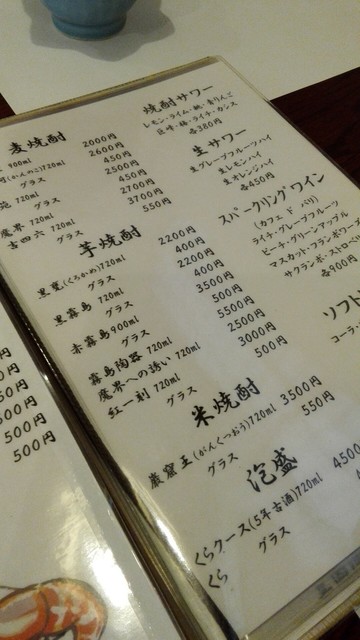 麦焼酎
900ml 2000円
(かんのこ)720ml 2600円
グラス 450円
720ml 2500円
グラス 450円
魔界 720ml 2700円
吉四六 720ml 3700円
グラス 550円
芋焼酎
黒甕(くろかめ)720ml 2200円
グラス 400円
黒霧島 720ml 2200円
グラス 400円
赤霧島900ml 3500円
グラス 500円
霧島陶器 720ml 5500円
魔界への誘い 720ml 2500円
紅一刻 720ml 3000円
グラス 500円
米焼酎
巌窟王(がんくつおう)720ml 3500円
グラス 550円
泡盛
くらクース(5年古酒)720ml 4500
グラス
くら
焼酎サワー
レモン・ライム・桃・青りんご
巨峰・梅・ライチ・カシス
各380円
生サワー
生グレープフルーツハイ
生レモンハイ
生オレンジハイ
各450円
スパークリングワイン
(カフェ ド パリ)
ライチ・グレープフルーツ
ピーチ・グリーンアップル
マスカット・フランボワー
サクランボ・ストロー
各900円
ソフト
コーラ・
円
50円
50円
500円
500円
500円